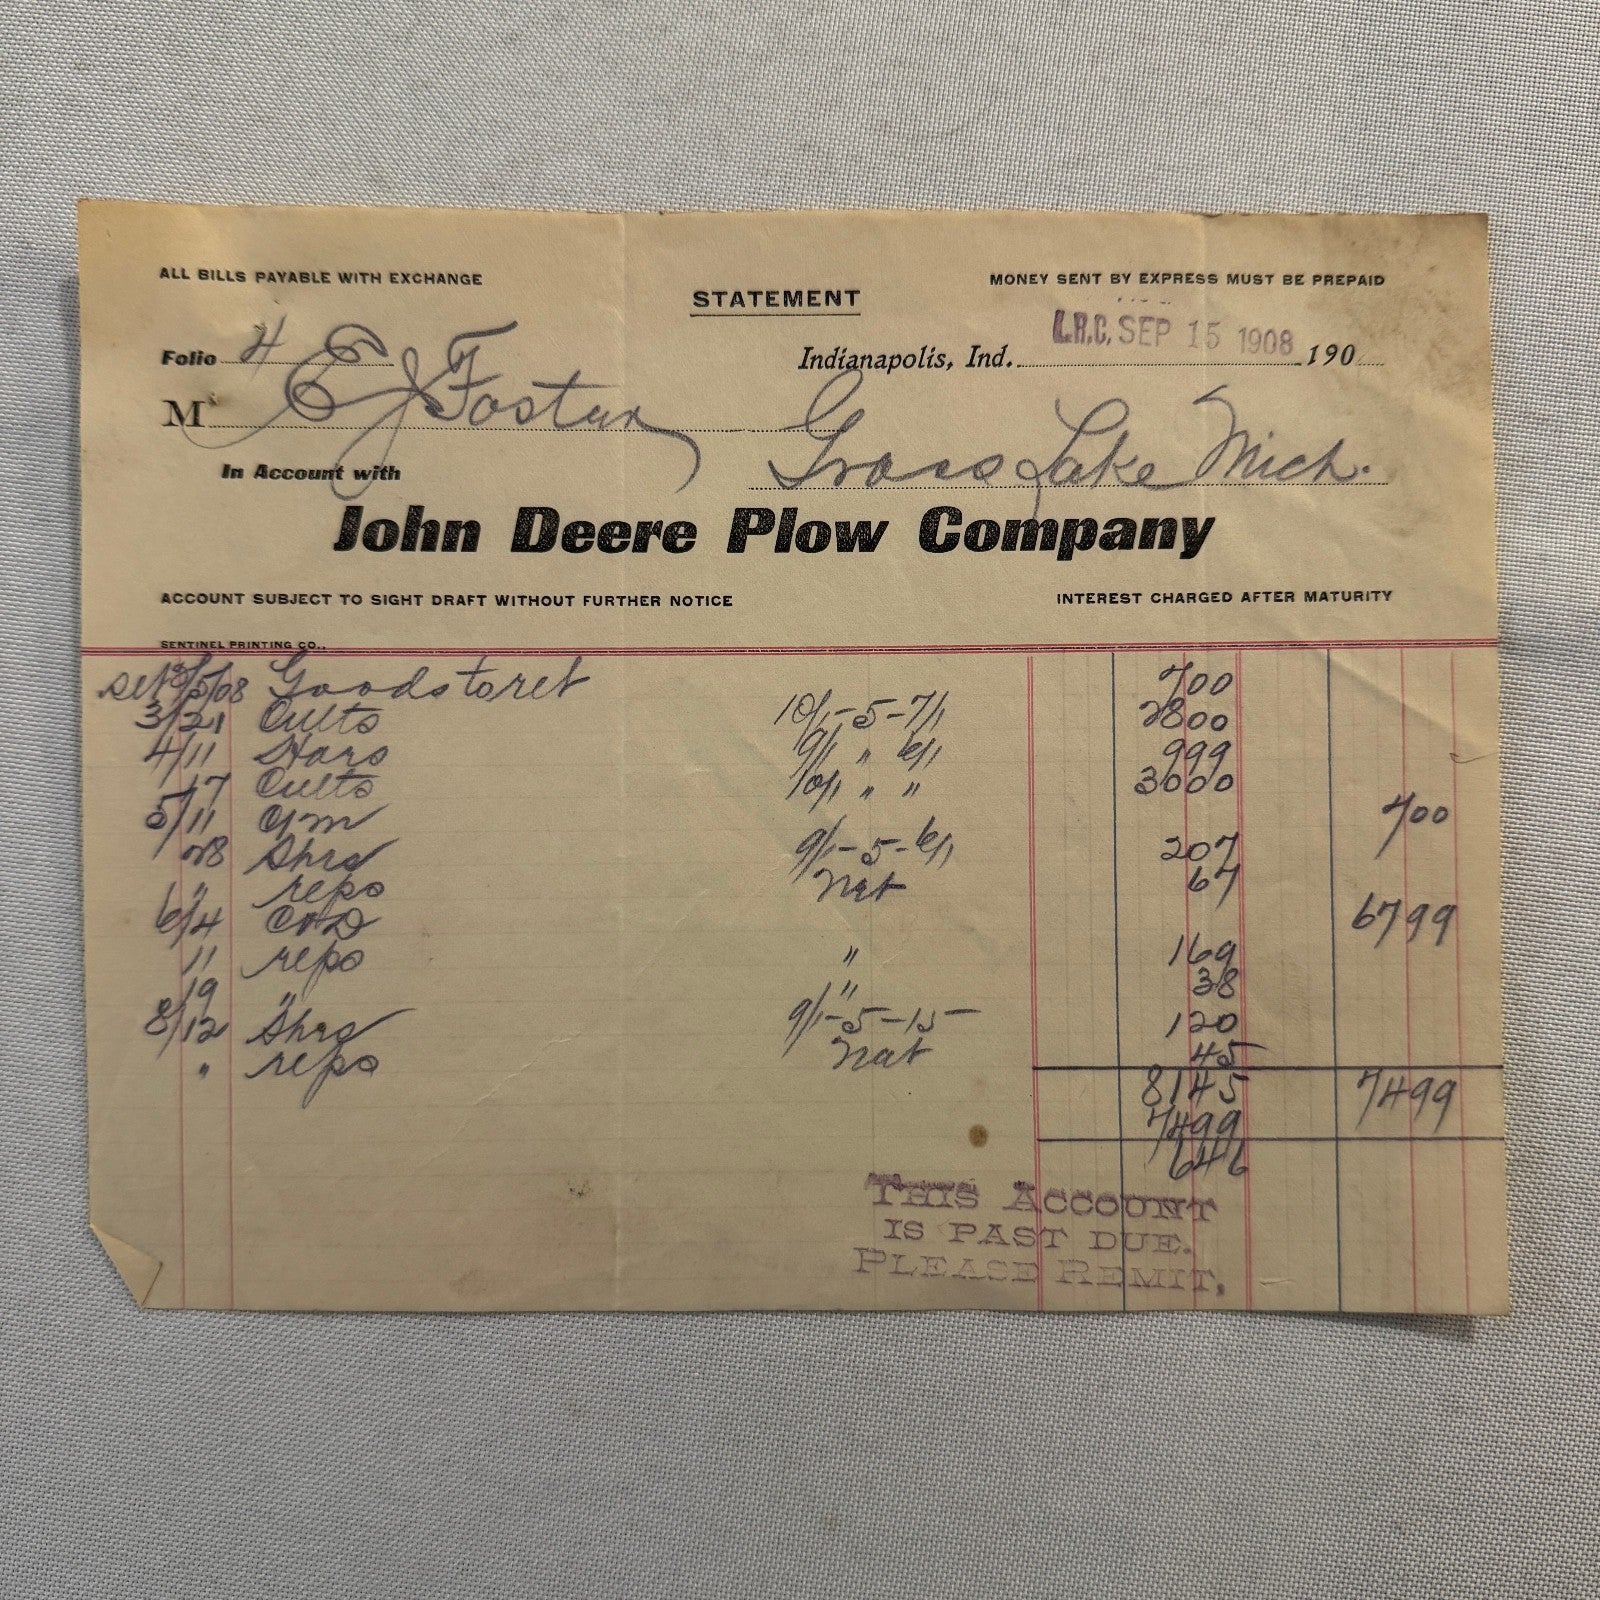 ALL BILLS PAYABLE WITH EXCHANGE
MONEY SENT BY EXPRESS MUST BE PREPAID
STATEMENT
Folio 4
Indianapolis, Ind. L.R.C. SEP 15 1908 190
M E J Foster
Grass Lake Mich.
In Account with
John Deere Plow Company
ACCOUNT SUBJECT TO SIGHT DRAFT WITHOUT FURTHER NOTICE
INTEREST CHARGED AFTER MATURITY
SENTINEL PRINTING CO.,
/08 Goods 700
3/21 Cults 10/1-5-7/1 2800
4/11 Hars 9/1 " 6/1 999
17 Cults 10/1 " " 3000
5/11 700
28 Shrs 9/1-5-6/1 207
" reps Net 67
6/4 6799
11 reps " 169
19 " " 38
8/12 Shrs 9/1-5-15- 120
" reps Net 45
8145 7499
7499
646
THIS ACCOUNT
IS PAST DUE.
PLEASE REMIT.